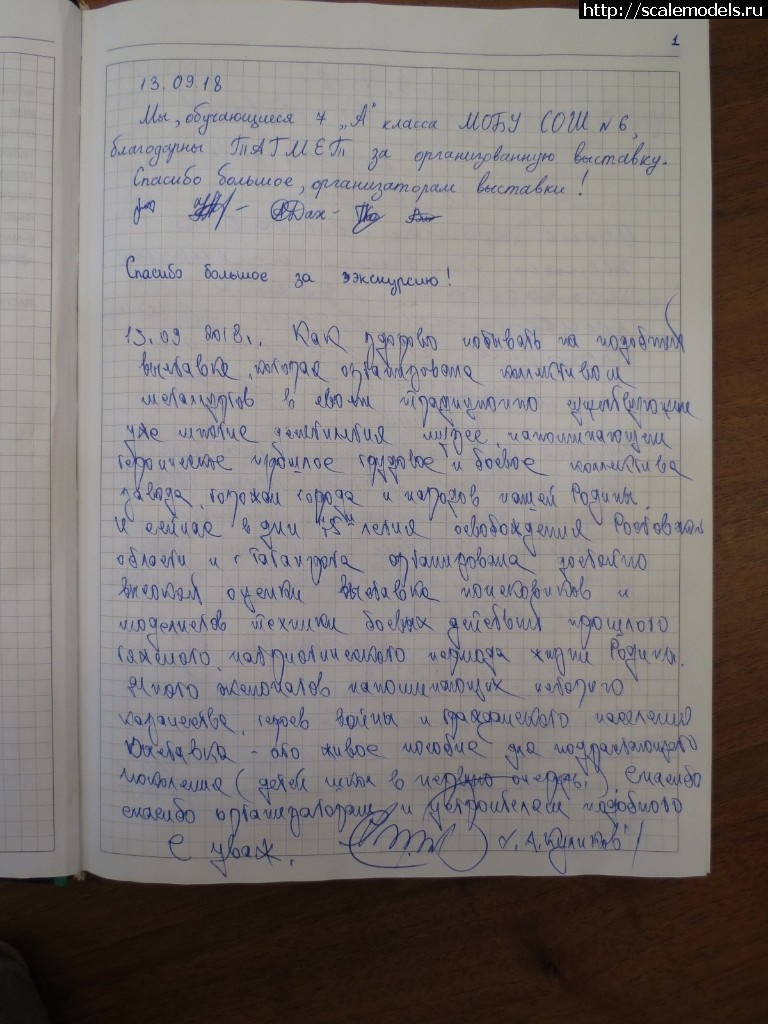 http://scalemodels.ru
1
13.09.18
Мы, обучающиеся 7 „А" класса МОБУ СОШ №6,
благодарны ТАГМЕТ за организованную выставку.
Спасибо большое, организаторам выставки!
Спасибо большое за экскурсию!
13.09 2018г. Как здорово побывать на подобной
выставке, которая организована коллективом
металлургов в своем традиционно существующем
уже многие десятилетия музее, напоминающем
героическое прошлое трудовое и боевое коллектива
завода, горожан города и народов нашей Родины.
И сейчас в дни 75 летия освобождения Ростовской
области и г Таганрога организована достойно
высокой оценки выставка поисковиков и
моделистов техники боевых действий прошлого
тяжелого, патриотического периода жизни Родины.
Много экспонатов напоминающих историю
казачества, героев войны и гражданского населения
Выставка - это живое пособие для подрастающего
поколения (детей школ в первую очередь). Спасибо
спасибо организаторам и устроителям подобного
С уваж.